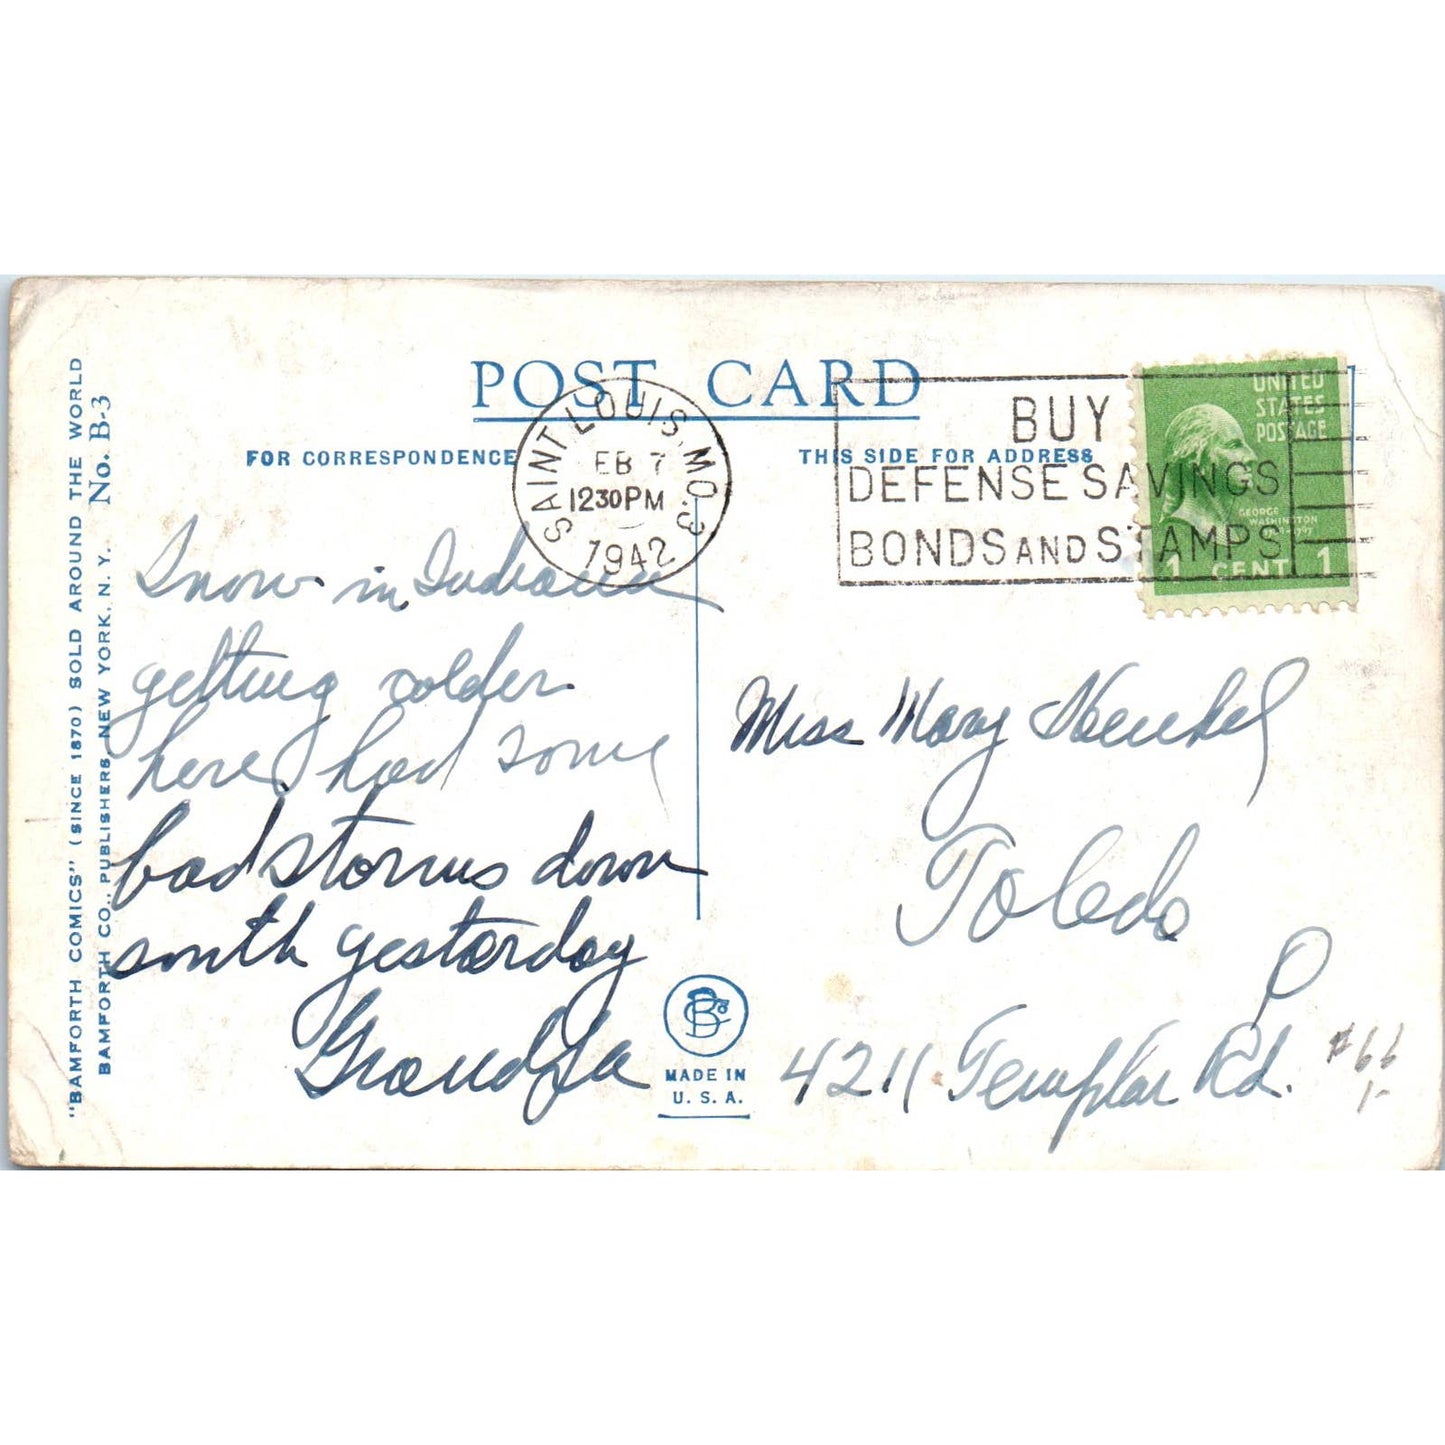 POST CARD
FOR CORRESPONDENCE
THIS SIDE FOR ADDRESS
SAINT LOUIS, MO. 3
FEB 7
1230PM
1942
BUY
DEFENSE SAVINGS
BONDS AND STAMPS
UNITED
STATES
POSTAGE
GEORGE
WASHINGTON
1 CENT 1
Snow in Indiana
getting colder
here had some
bad storms down
south yesterday
Grandpa
Miss Mary Henkel
Toledo
O
4211 Templar Rd.
#66
1-
MADE IN
U. S. A.
"BAMFORTH COMICS" (SINCE 1870) SOLD AROUND THE WORLD
BAMFORTH CO., PUBLISHERS, NEW YORK, N. Y. No. B-3